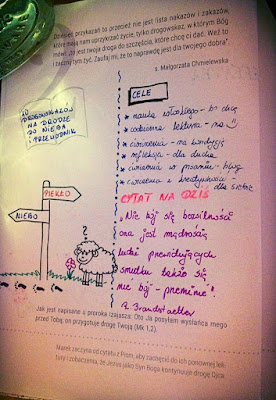 Dziesięć przykazań to przecież nie jest lista nakazów i zakazów,
które mają nam uprzykrzać życie, tylko drogowskazów, w którym Bóg
mówi: „To jest twoja droga do szczęścia, które chcę ci dać. Weź to
i zacznij tym żyć. Zaufaj mi, że to naprawdę jest dla twojego dobra".
s. Małgorzata Chmielewska
DROGOWSKAZ(Y)
NA DRODZE
DO NIEBA
PRZEWODNIK
PIEKŁO
NIEBO
CELE
* nauka włoskiego - b. chcę
* codzienna lektura - na
* ćwiczenia - na kondycję
* refleksja - dla ducha
* ćwiczenia w pisaniu - blog
* ćwiczenia z kreatywności - dla siebie
CYTAT NA DZIŚ
„Nie bój się bezsilności
ona jest mądrością
ludzi
smutku także się
nie bój - przeminie".
R. Brandstaetter
Jak jest napisane u proroka Izajasza: Oto Ja posyłam wysłańca mego
przed Tobą; on przygotuje drogę Twoją (Mk 1,2).
Marek zaczyna od cytatu z Pism, aby zachęcić do ich ponownej lek-
tury i zobaczenia, że Jezus jako Syn Boga kontynuuje drogę Ojca